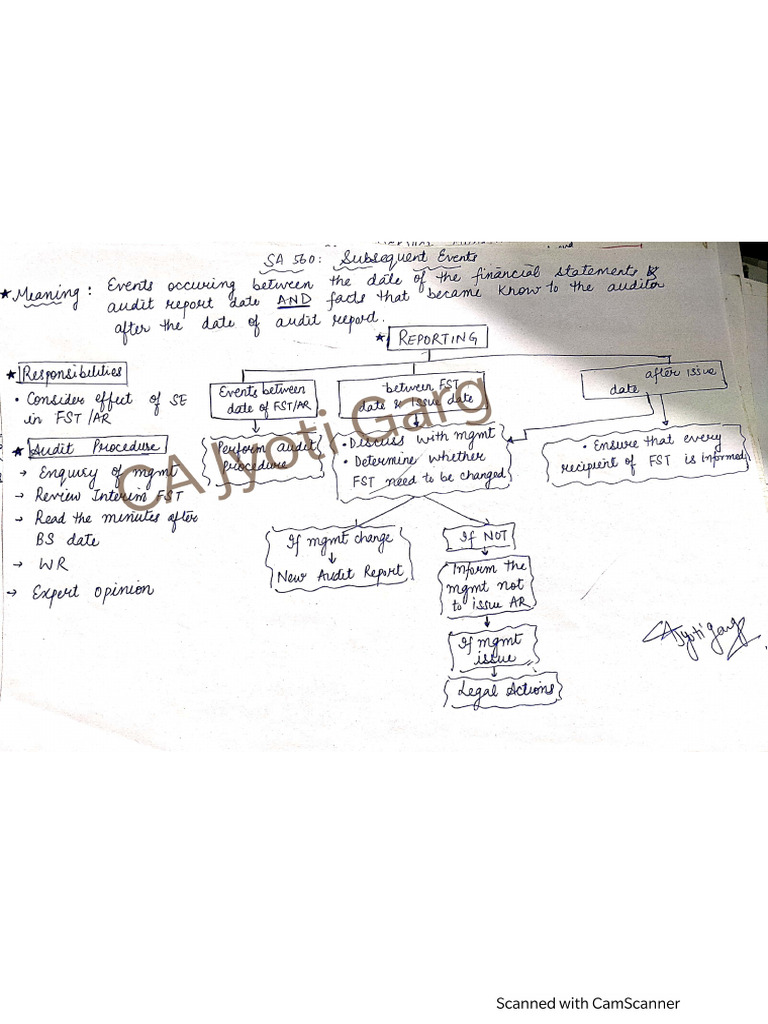 SA 560: Subsequent Events
★ Meaning: Events occuring between the date of the financial statements &
audit report date AND facts that became know to the auditor
after the date of audit report.
★ REPORTING
★ Responsibilities
• Consider effect of SE
in FST/AR
★ Audit Procedure
→ Enquiry of mgmt
→ Review Interim FST
→ Read the minutes after
BS date
→ WR
→ Expert opinion
Events between
date of FST/AR
Perform audit
Procedure
between FST
date & Issue date
• Discuss with mgmt
• Determine whether
FST need to be changed
after issue
date
• Ensure that every
recipient of FST is informed
If mgmt change
↓
New Audit Report
If NOT
Inform the
mgmt not
to issue AR
If mgmt
issue
Legal Actions
CA Jyoti Garg
CA Jyoti Garg
Scanned with CamScanner